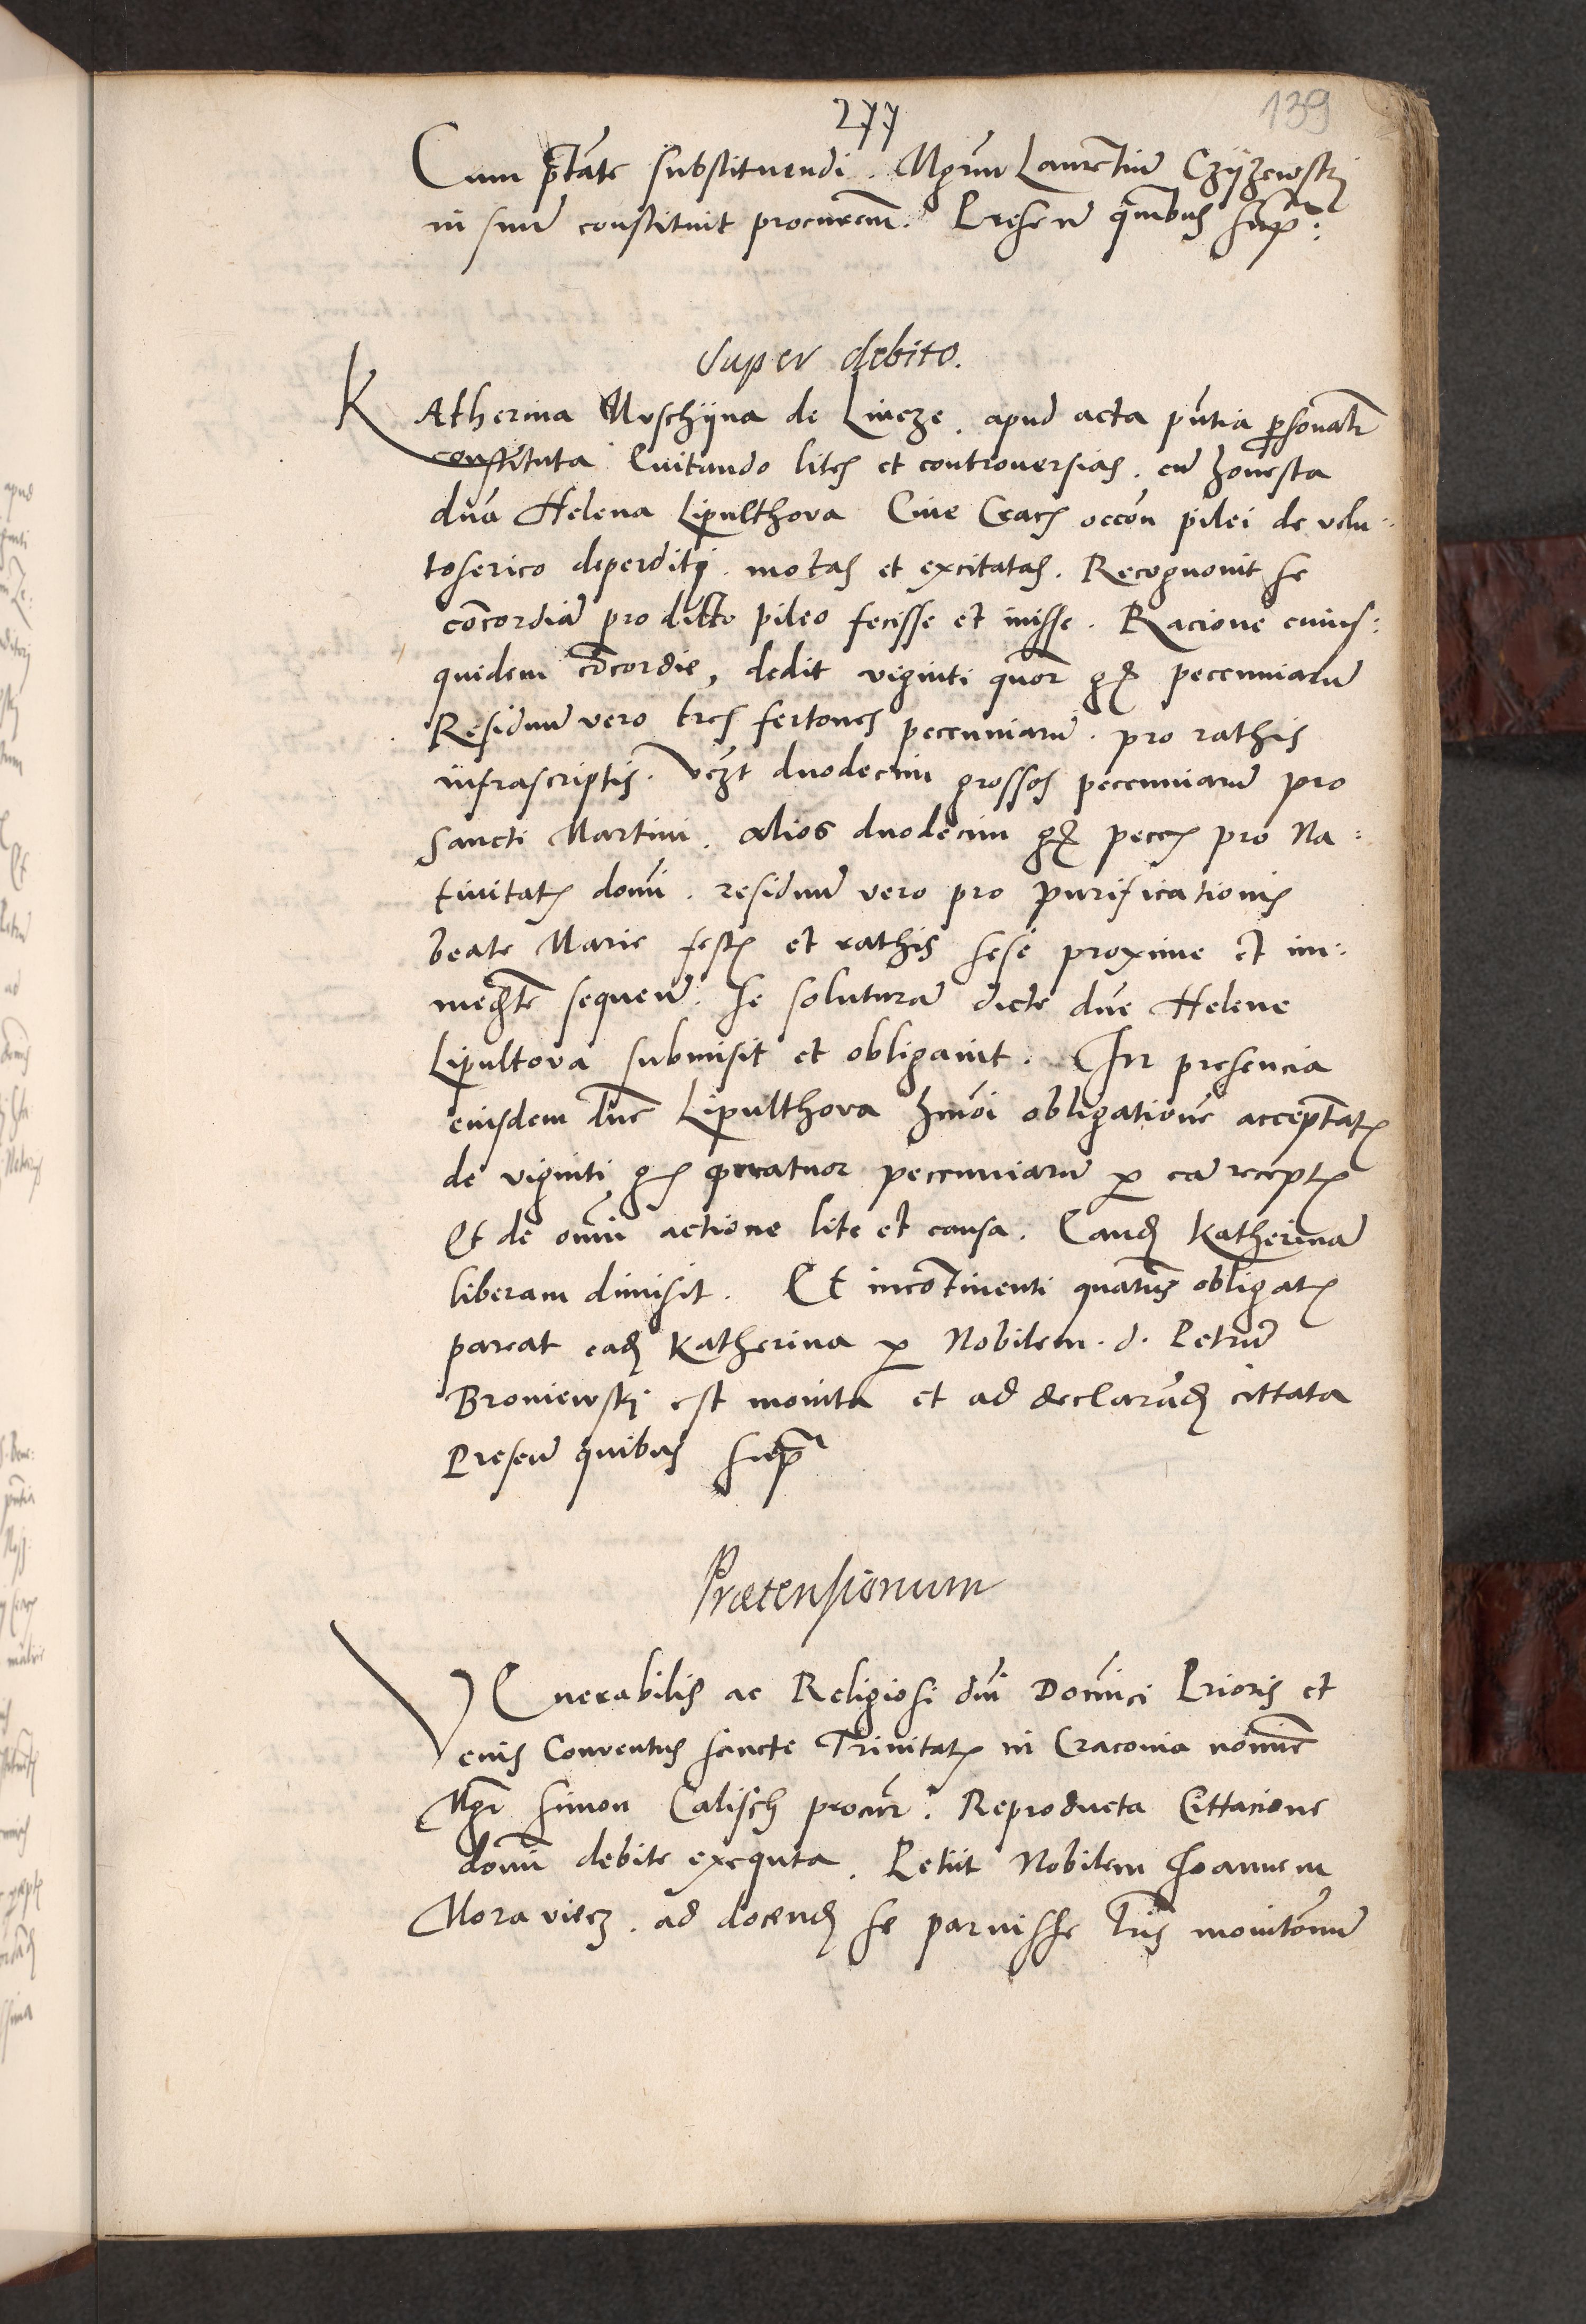 277
139
Cum ptate substituendi. Mgrum Laurentiu Czyzewskj
in suu constituit procurem. Presen quibus supra:
Super debito.
KAtherina de apud acta pntia psonalr
constituta Evitando lites et controversias. cu honesta
dna Helena Lipulthova Cive Crac occon pilei de velu-
toserico deperditj. motas et excitatas. Recognovit se
concordia pro dicto pileo fecisse et inisse. Racione cuius:
quidem concordie, dedit viginti quor gr pecunniaru
Residuu vero tres fertones pecunniaru. pro rathis
infrascriptis. vczt duodecim grossos pecunniaru pro
Sancti Martini. alios duodecim gr pecc pro Na:
tivitatis domi. residuu vero pro purificationis
beate Marie festis et rathis sese proxime et im:
mediate sequen. se soluturа dicte dne Helene
Lipultova submisit et obligavit. In presencia
eiusdem dne Lipulthova hmoi obligatione acceptatis
de viginti gr quatuor pecunniaru p ea receptis
Et de omni actione lite et causa. Eand Katherina
liberam dimisit. Et incontinenti quatus obligatis
pareat ead Katherina p Nobilem. d. Petru
Broniewskj est monita et ad declarand cittata
Presen quibus supra
Prætensionum
VEnerabilis ac Religiosi dni Domici Prioris et
eius Conventus Sancte Trinitatis in Cracovia nomine
Mgr Simon Calisch procur. Reproducta Cittacione
domi debite exequta. Petiit Nobilem Joannem
Moraviecz. ad docend se paruisse lris monitoriu